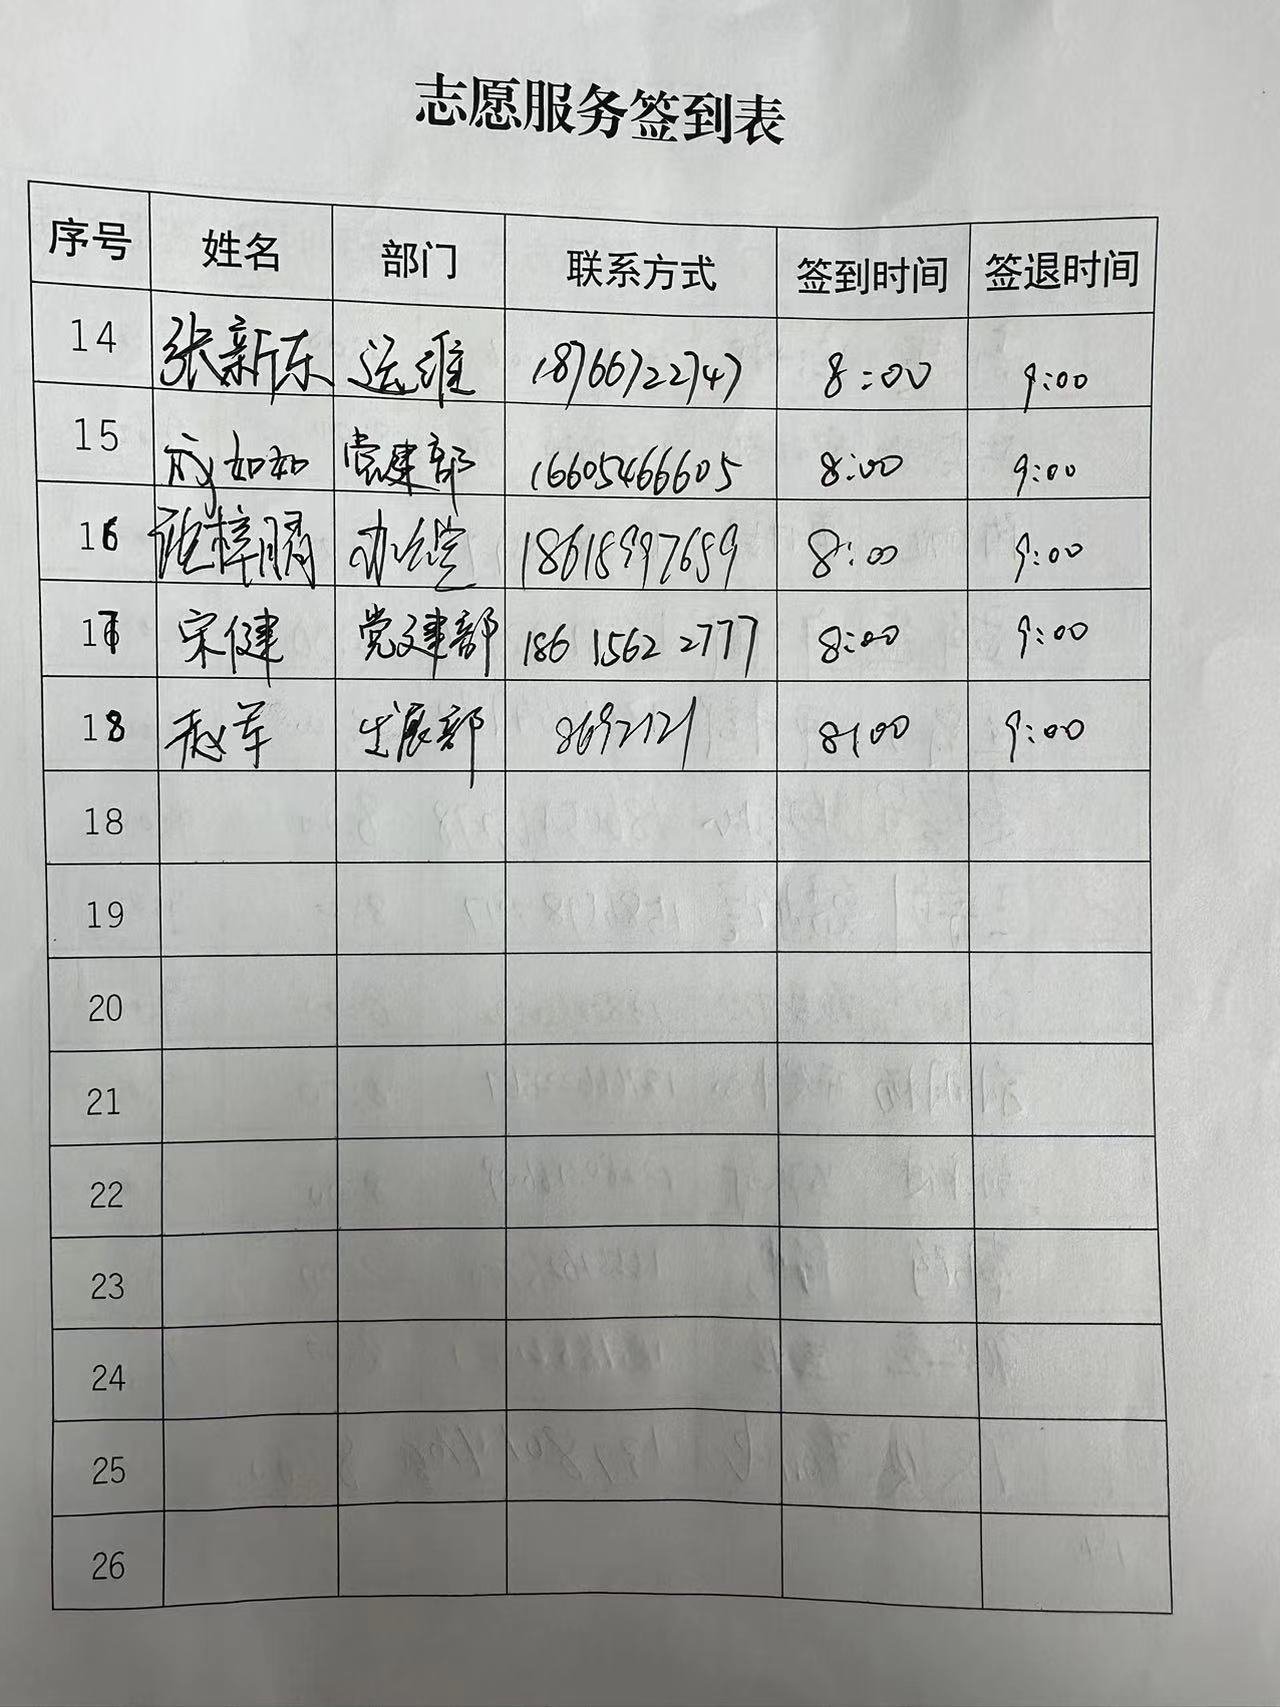 志愿服务签到表
序号 姓名 部门 联系方式 签到时间 签退时间
14 张新东 运维 18766722747 8:00 9:00
15 成如如 党建部 16605466605 8:00 9:00
16 梓腈 办公室 18618997659 8:00 9:00
17 宋健 党建部 186 1562 2777 8:00 9:00
18 赵军 发展部 8692121 8:00 9:00
18
19
20
21
22
23
24
25
26